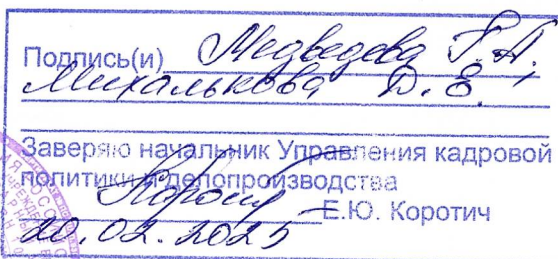 Подпись(и) Медведева Г.А.,
Михалькова Д.Е.
Заверяю начальник Управления кадровой
политики и делопроизводства
Е.Ю. Коротич
20.02.2025